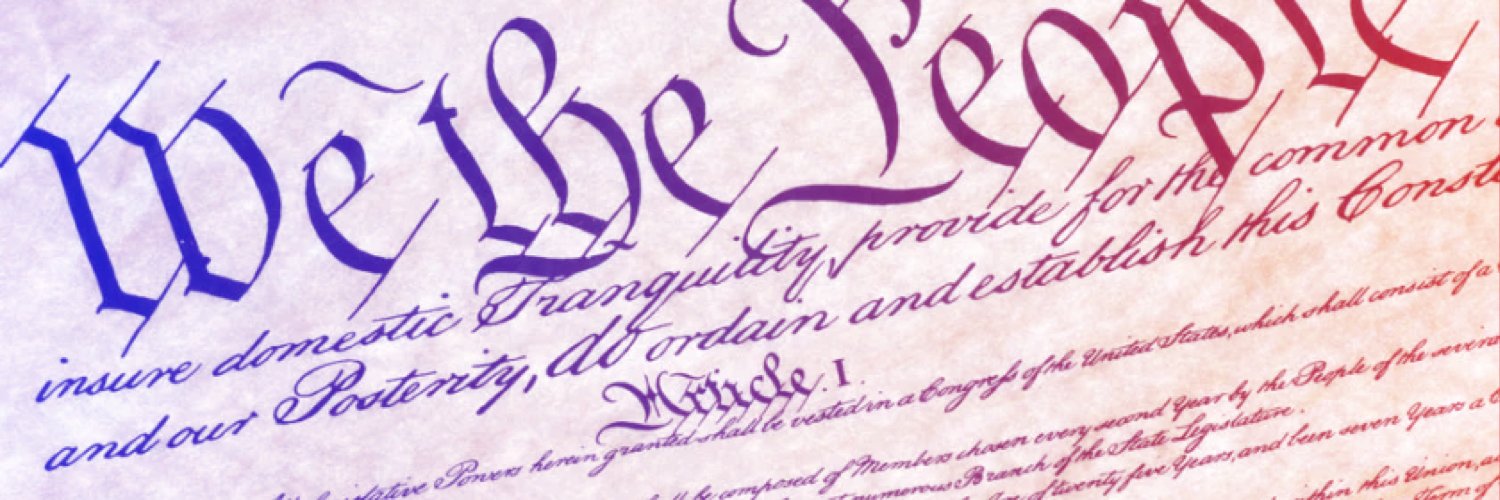 We the People
insure domestic Tranquility, provide for the common
and our Posterity, do ordain and establish this Const
Article. I.
islative Powers herein granted shall be vested in a Congress of the United States, which shall consist of a
ll be composed of Members chosen every second Year by the People of the severa
numerous Branch of the State Legislature.
of twenty five Years, and been seven Years a C
within this Union, a